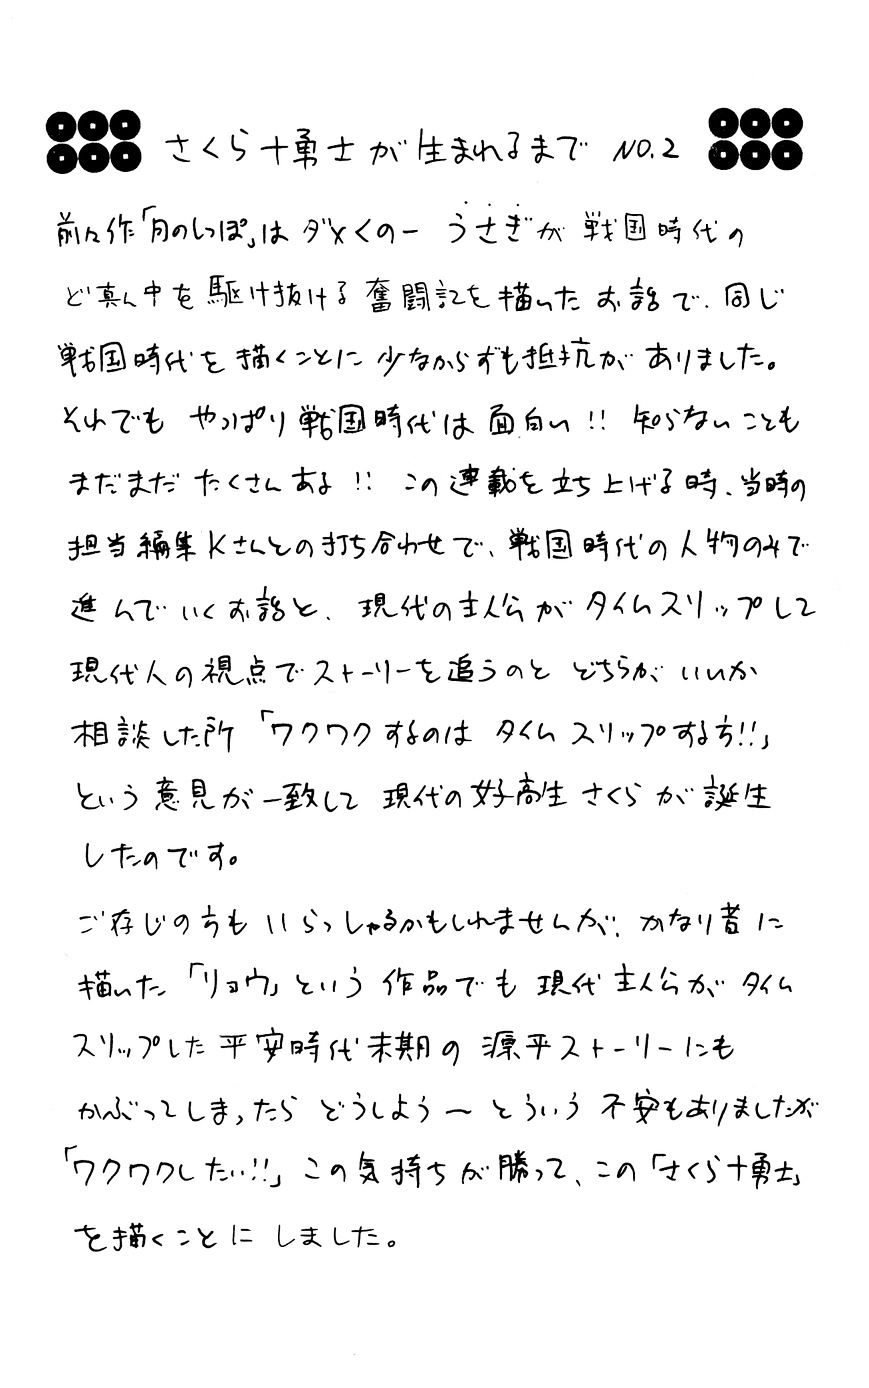 さくら十勇士が生まれるまで NO.2
前々作「月のしっぽ」は ダメくの一 うさぎが 戦国時代の
ど真ん中を 駆け抜ける 奮闘記を 描いた お話で、同じ
戦国時代を 描くことに 少なからずも抵抗が ありました。
それでも やっぱり 戦国時代は 面白い!! 知らないことも
まだまだ たくさん ある!! この 連載を 立ち上げる 時、当時の
担当 編集 Kさんとの打ち合わせで、戦国時代の人物のみで
進んで いく お話と、現代の主人公が タイムスリップして
現代人の視点でストーリーを追うのと どちらが いいか
相談した所 「ワクワクするのは タイム スリップする方!!」
という 意見が一致して 現代の女子高生 さくらが 誕生
したのです。
ご存じの方も いらっしゃるかもしれませんが、かなり昔に
描いた 「リョウ」という 作品でも 現代 主人公が タイム
スリップした 平安時代末期の 源平ストーリーにも
かぶってしまったら どうしよう〜 とういう 不安もありましたが
「ワクワクしたい!!」この気持ちが勝って、この「さくら十勇士」
を描くことに しました。